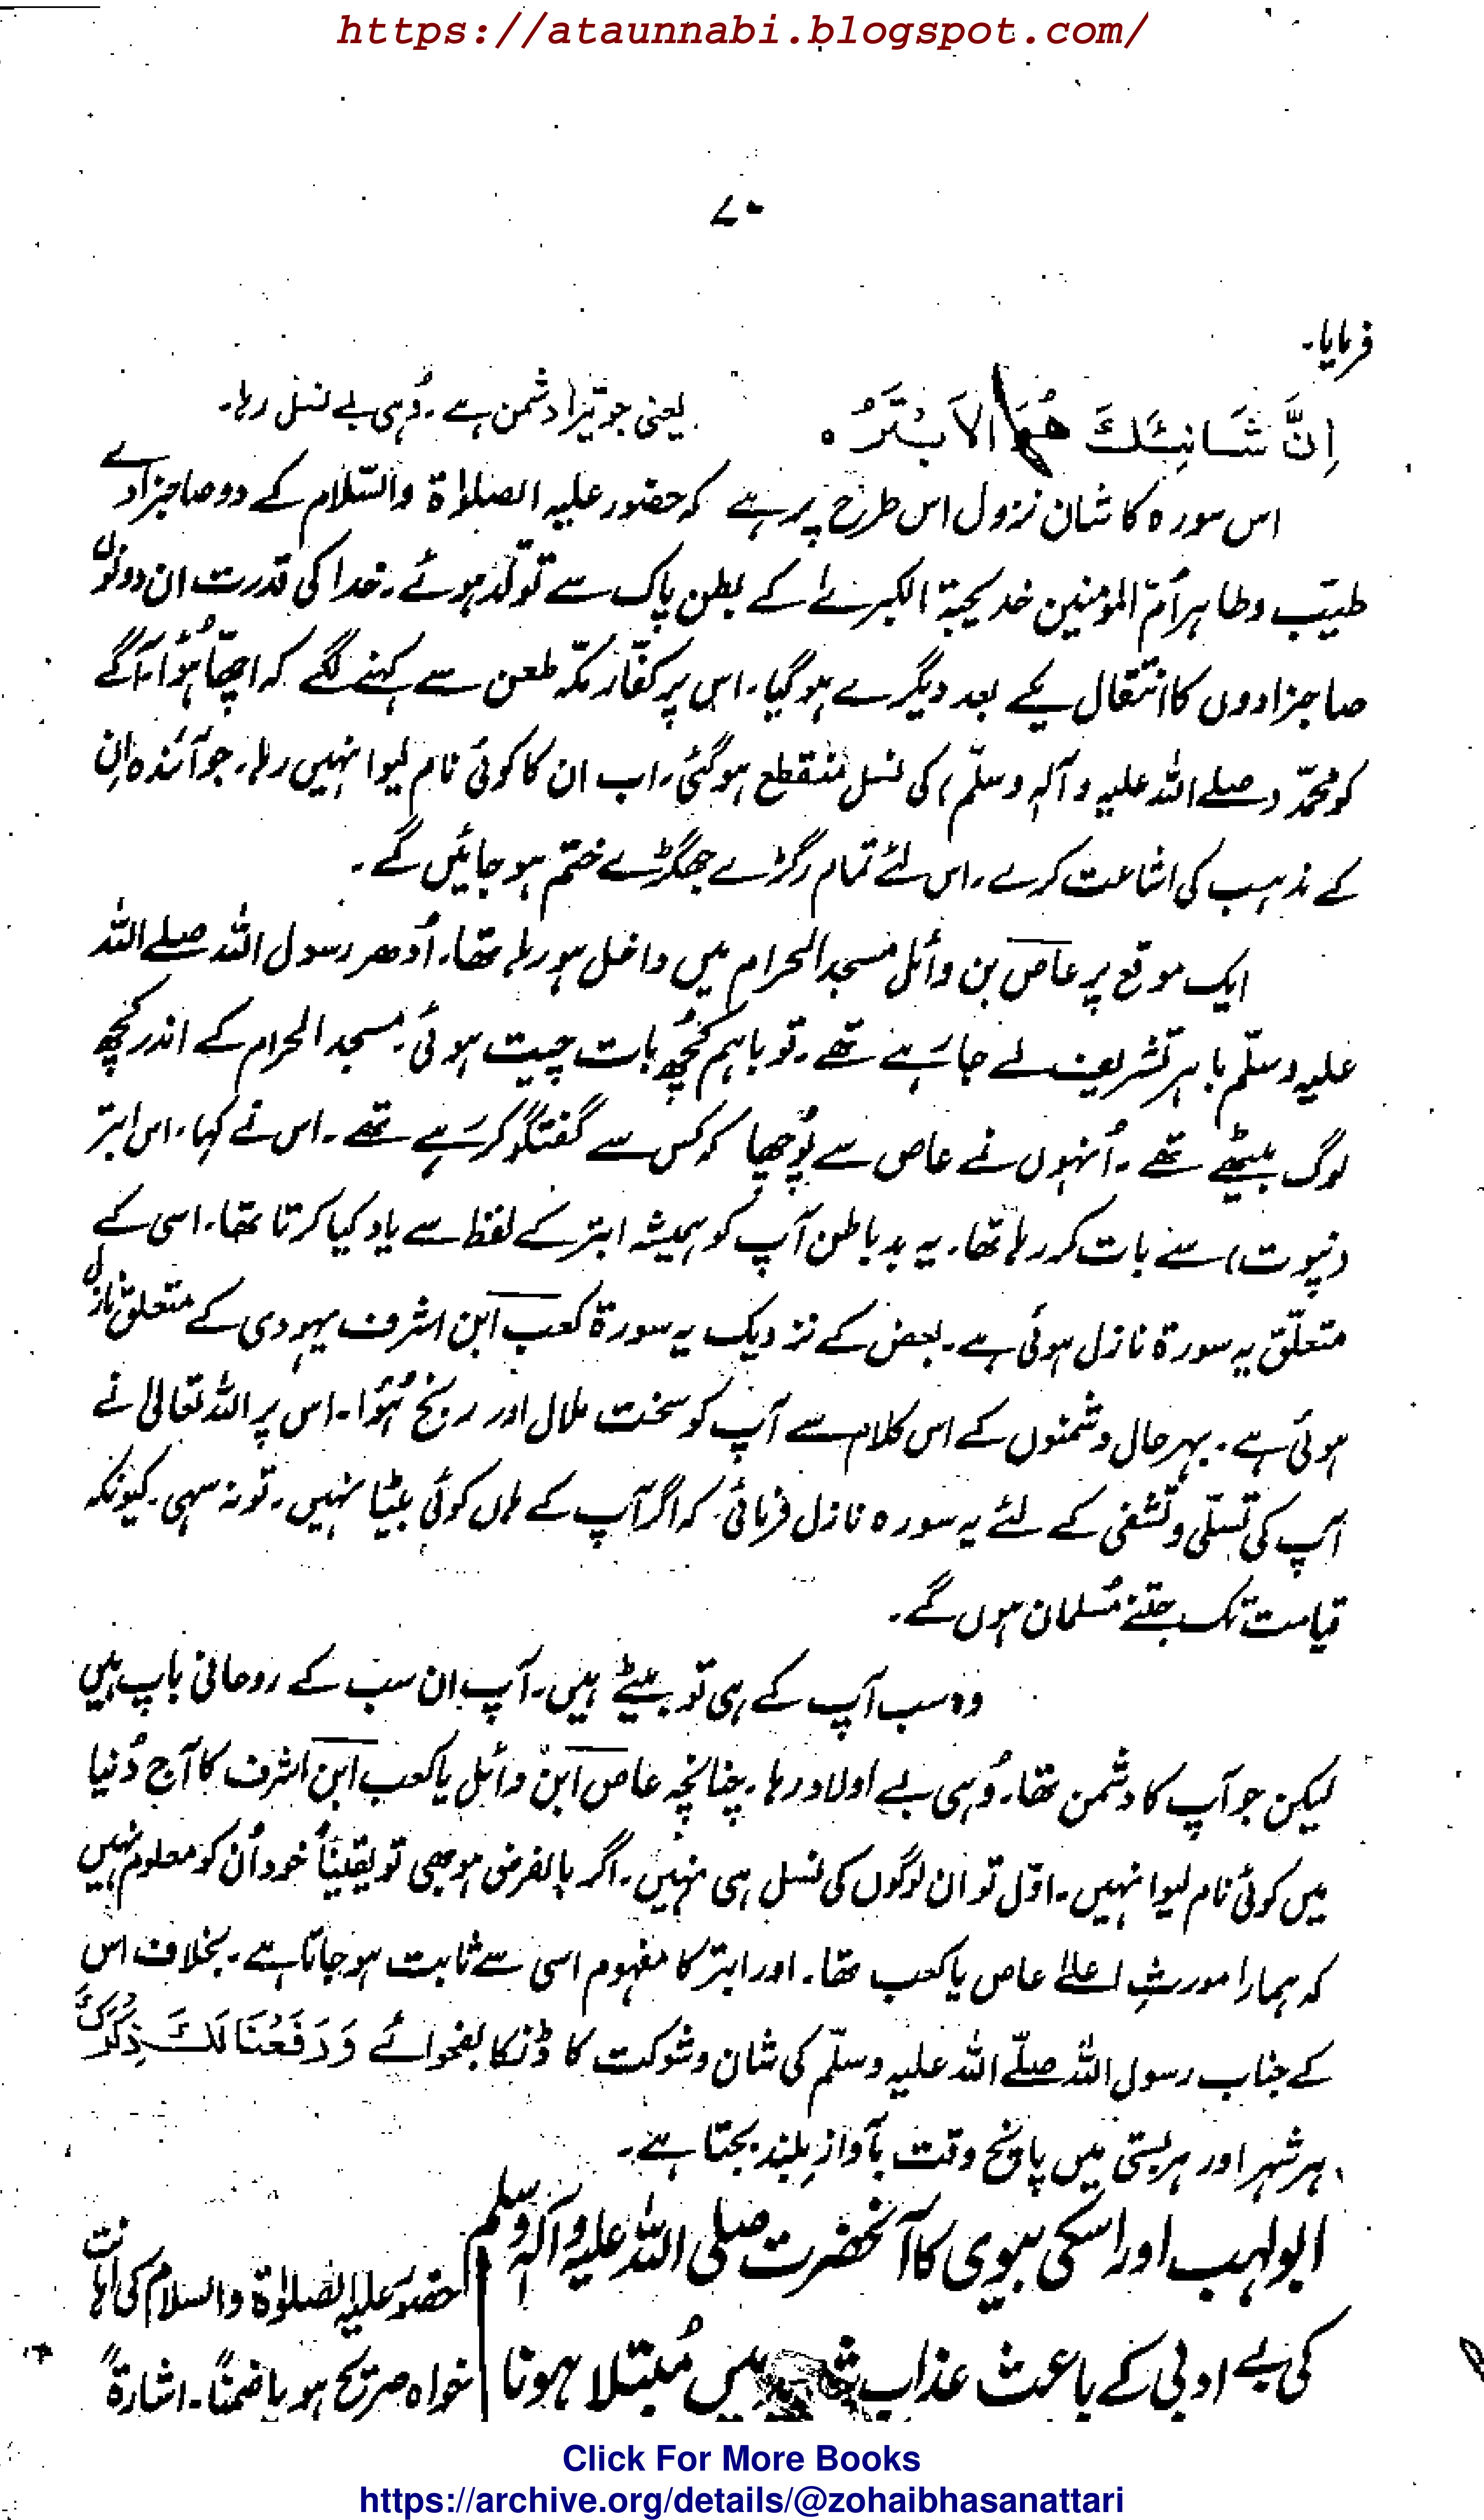 https://ataunnabi.blogspot.com/
۷۰
فرمایا۔
اِنَّ شَانِئَكَ هُوَ الاَبْتَرُ ہ یعنی جو تیرا دشمن ہے۔ وُہی بے نسل رہا۔
اس سورہ کا شان نزول اس طرح پر ہے کہ حضور علیہ الصلوٰۃ والسّلام کے دو صاحبزادے
طیّب وطاہر اُمّ المؤمنین خدیجۃ الکبرےٰ کے بطن پاک سے تولّد ہوئے۔ خدا کی قدرت ان دونوں
صاحبزادوں کا انتقال یکے بعد دیگرے ہو گیا۔ اس پر کفّار مکّہ طعن سے کہنے لگے کہ اچھّا ہُوٗا۔ آگے
کو محمّد (صلے اللہ علیہ وآلہٖ وسلّم) کی نسل منقطع ہو گئی۔ اب ان کا کوئی نام لیوا نہیں رہا۔ جو آئندہ ان
کے مذہب کی اشاعت کرے۔ اس لئے تمام رگڑے جھگڑے ختم ہو جائیں گے۔
ایک موقع پر عاص بن وائل مسجد الحرام میں داخل ہو رہا تھا۔ اُدھر رسول اللہ صلے اللہ
علیہ وسلّم باہر تشریف لے جا رہے تھے۔ تو باہم کُچھ بات چیت ہوئی۔ مسجد الحرام کے اندر کُچھ
لوگ بیٹھے تھے۔ اُنہوں نے عاص سے پُوچھا کہ کس سے گفتگو کر رہے تھے۔ اس نے کہا۔ اس ابتر
(نپوت) سے بات کر رہا تھا۔ یہ بد باطن آپ کو ہمیشہ ابتر کے لفظ سے یاد کیا کرتا تھا۔ اسی کے
متعلّق یہ سورۃ نازل ہوئی ہے۔ بعض کے نزدیک یہ سورۃ کعب ابن اشرف یہودی کے متعلق نازل
ہوئی ہے۔ بہرحال دشمنوں کے اس کلام سے آپ کو سخت ملال اور رنج ہُوٗا۔ اس پر اللہ تعالیٰ نے
آپ کی تسلّی وتشفی کے لئے یہ سورہ نازل فرمائی۔ کہ اگر آپ کے ہاں کوئی بیٹا نہیں۔ تو نہ سہی۔ کیونکہ
قیامت تک جتنے مُسلمان ہوں گے۔
وہ سب آپ کے ہی تو بیٹے ہیں۔ آپ ان سب کے روحانی باپ ہیں
لیکن جو آپ کا دشمن تھا۔ وُہی بے اولاد رہا۔ چنانچہ عاص ابن وائل یا کعب ابن اشرف کا آج دُنیا
میں کوئی نام لیوا نہیں۔ اوّل تو ان لوگوں کی نسل ہی نہیں۔ اگر بالفرض ہو بھی تو یقیناً خود اُن کو معلوم نہیں
کہ ہمارا مورثِ اعلےٰ عاص یا کعب تھا۔ اور ابتر کا مفہوم اسی سے ثابت ہو جاتا ہے۔ بخلاف اس
کے جناب رسول اللہ صلّے اللہ علیہ وسلّم کی شان وشوکت کا ڈنکا بفحوائے وَرَفَعْنَا لَكَ ذِكْرَكَ
ہر شہر اور ہر بستی میں پانچ وقت بآوازِ بلند بجتا ہے۔
ابولہب اور اسکی بیوی کا آنحضرت صلی اللہ علیہ وآلہٖ وسلم
کی بے ادبی کے باعث عذاب میں مُبتلا ہونا
حضور علیہ الصلوٰۃ والسلام کی اہانت
خواہ صریح ہو یا ضمناً۔ اشارۃً
Click For More Books
https://archive.org/details/@zohaibhasanattari